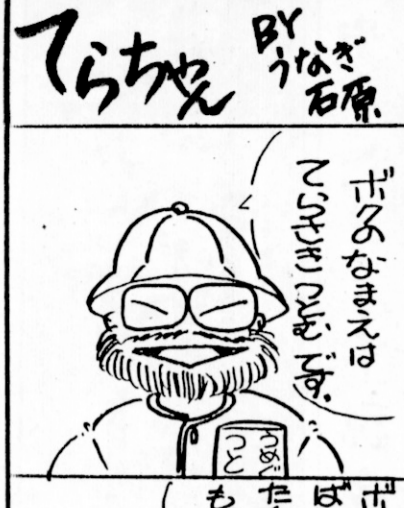 てらちゃん
BY
うなぎ
石原
ボクのなまえは
てらさきつとむです。
つと
ば
た
も